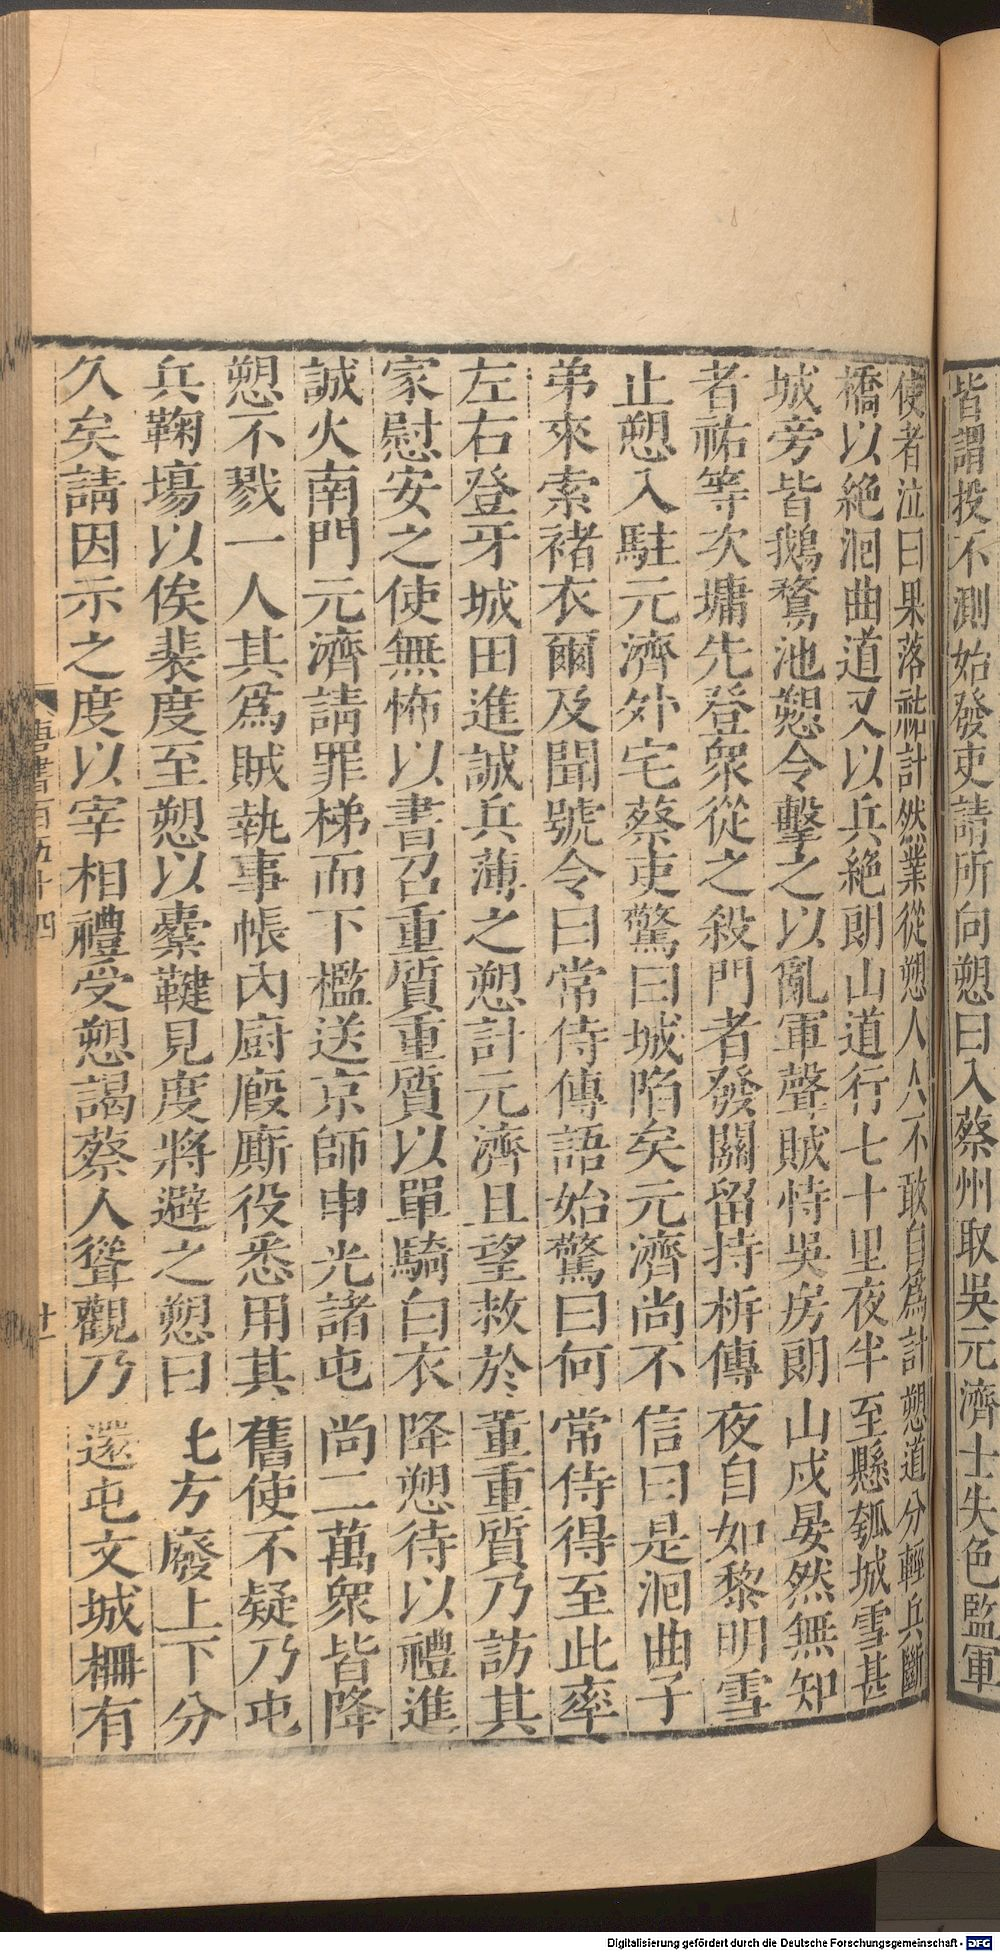 皆謂投不測始發吏請所向愬曰入蔡州取吳元濟士失色監軍
使者泣曰果落祐計然業從愬人人不敢自爲計愬道分輕兵斷
橋以絶洄曲道又以兵絶朗山道行七十里夜半至懸瓠城雪甚
城旁皆鵝鶩池愬令擊之以亂軍聲賊恃吳房朗山戍晏然無知
者祐等次墉先登衆從之殺門者發關留持柝傳夜自如黎明雪
止愬入駐元濟外宅蔡吏驚曰城陷矣元濟尚不信曰是洄曲子
弟來索褚衣爾及聞號令曰常侍傳語始驚曰何常侍得至此率
左右登牙城田進誠兵薄之愬計元濟且望救於董重質乃訪其
家慰安之使無怖以書召重質重質以單騎白衣降愬待以禮進
誠火南門元濟請罪梯而下檻送京師申光諸屯尚二萬衆皆降
愬不戮一人其爲賊執事帳内厨廐廝役悉用其舊使不疑乃屯
兵鞠塲以俟裴度至愬以櫜鞬見度將避之愬曰此方廢上下分
久矣請因示之度以宰相禮受愬謁蔡人聳觀乃還屯文城柵有
唐書百五十四
十一
Digitalisierung gefördert durch die Deutsche Forschungsgemeinschaft - DFG